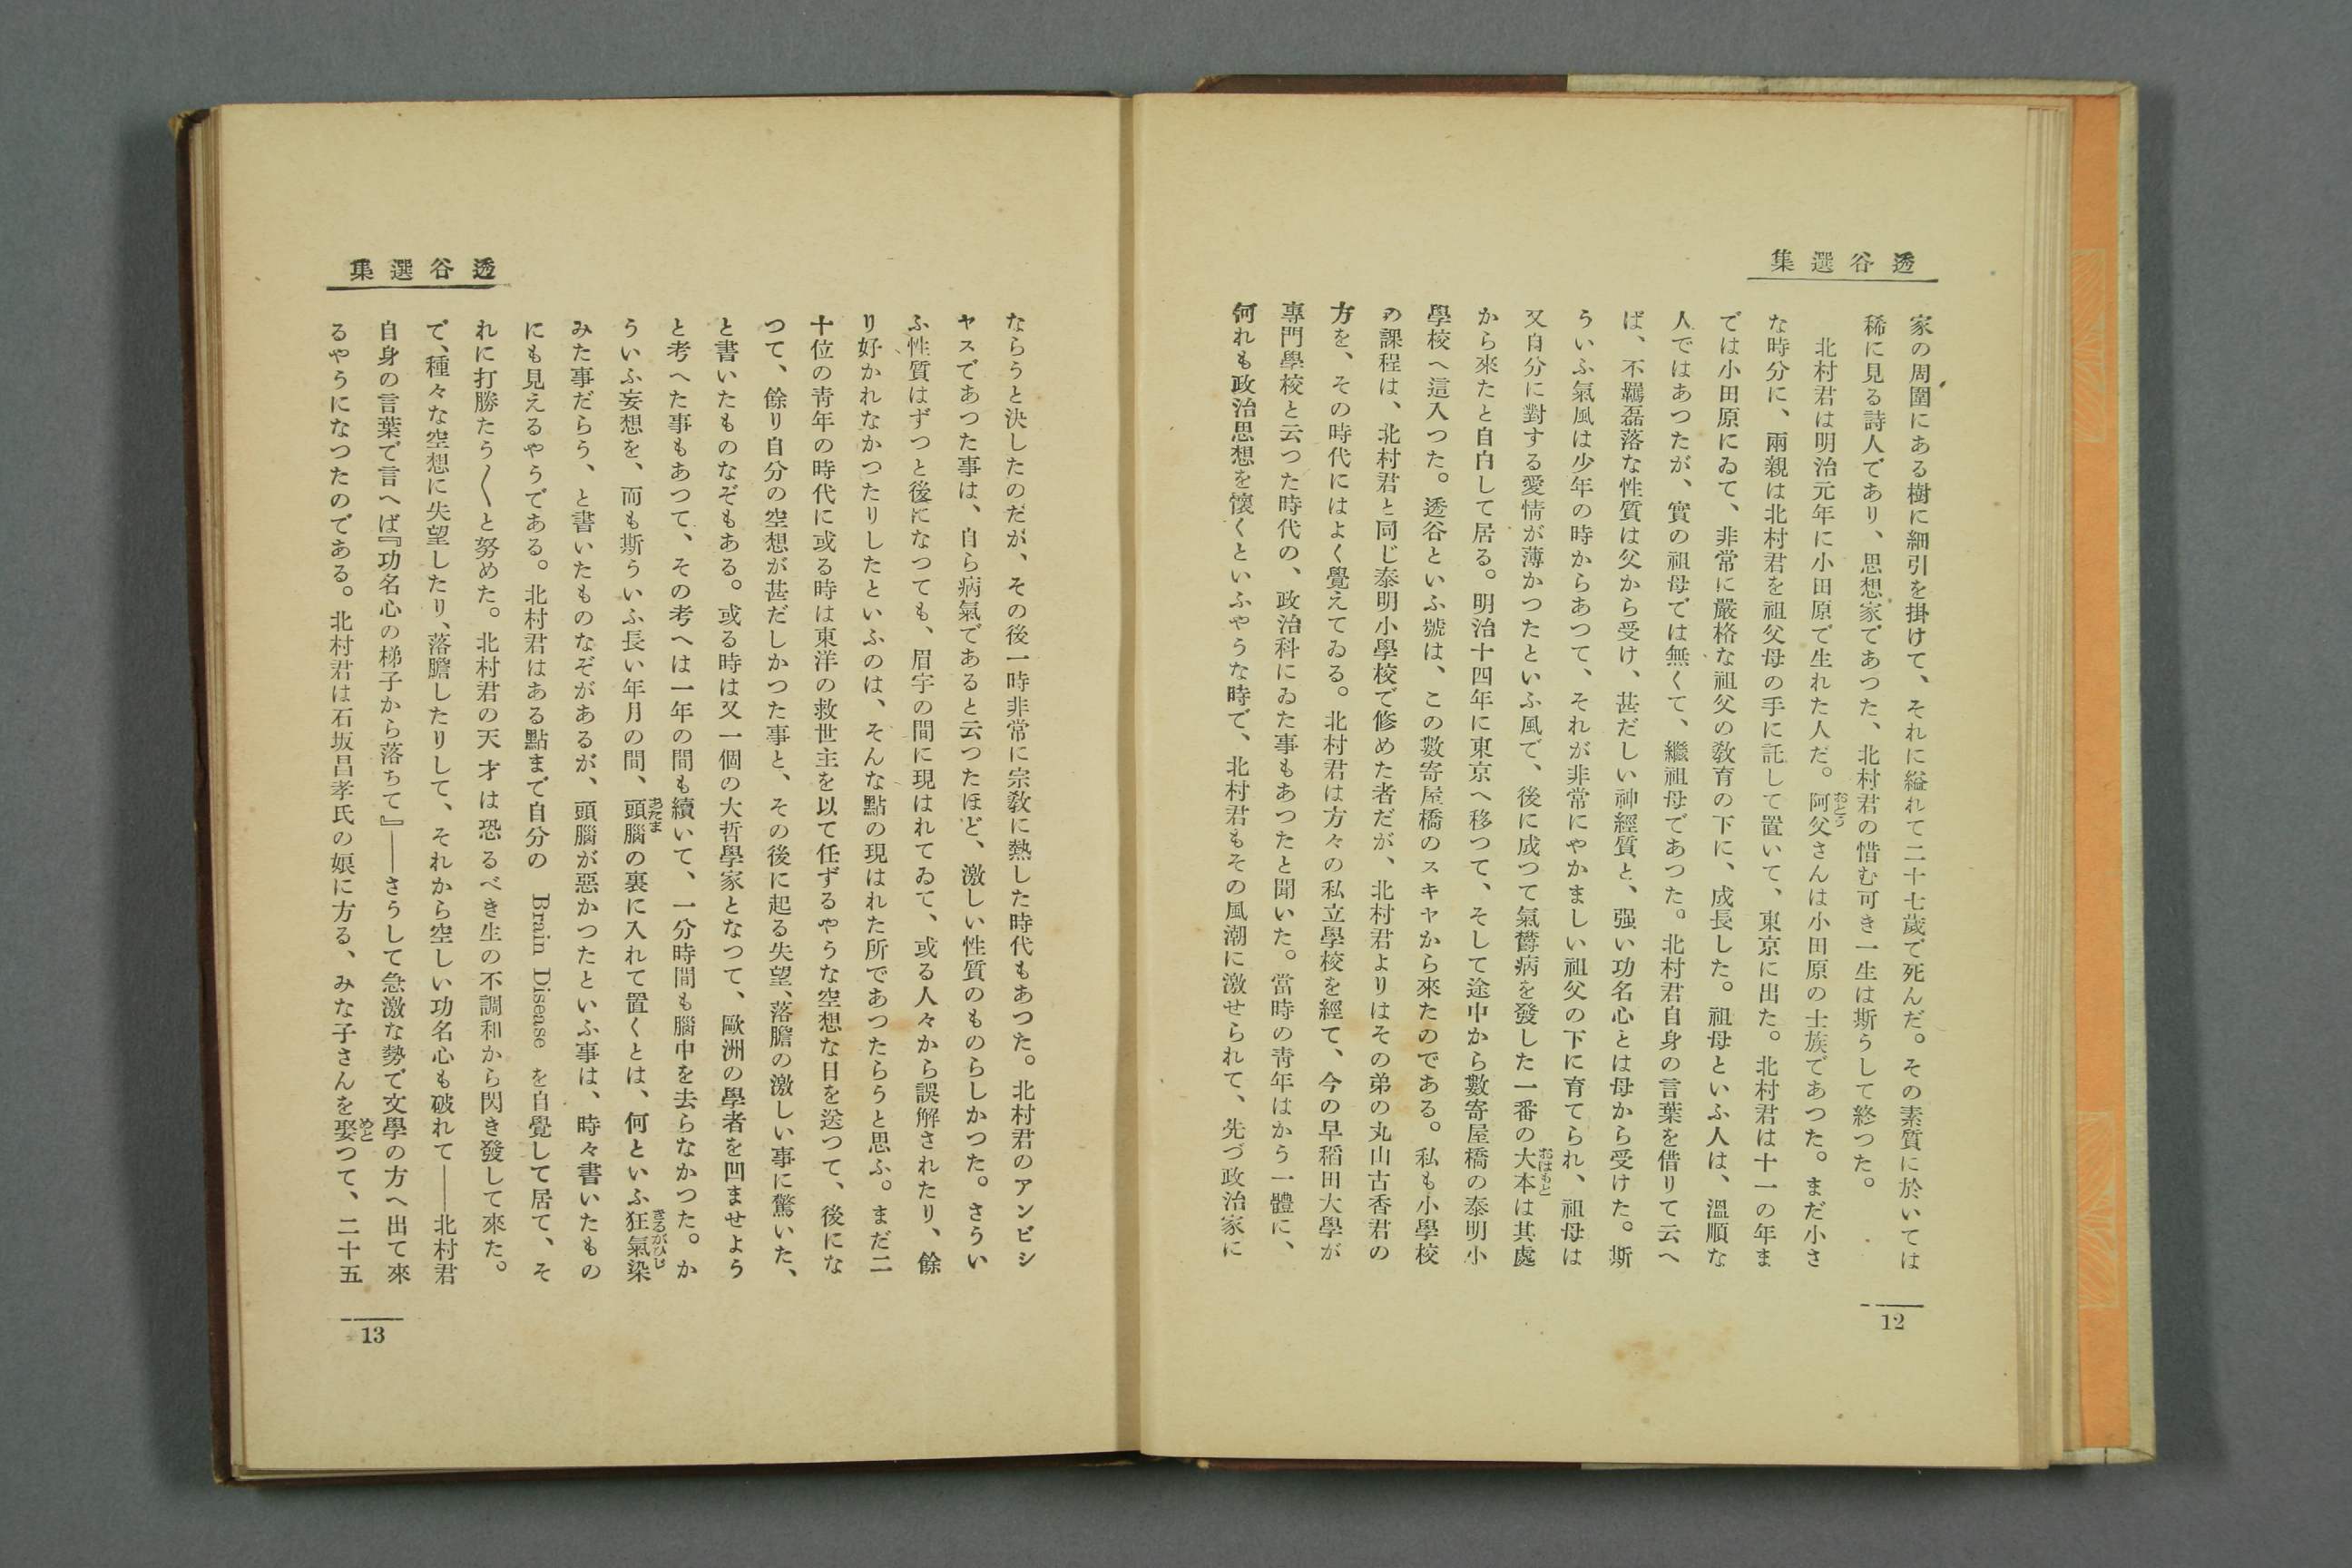 透谷選集
家の周圍にある樹に細引を掛けて、それに縊れて二十七歲で死んだ。その素質に於いては
稀に見る詩人であり、思想家であつた、北村君の惜む可き一生は斯うして終つた。
北村君は明治元年に小田原で生れた人だ。阿父さんは小田原の士族であつた。まだ小さ
な時分に、兩親は北村君を祖父母の手に託して置いて、東京に出た。北村君は十一の年ま
では小田原にゐて、非常に嚴格な祖父の敎育の下に、成長した。祖母といふ人は、溫順な
人ではあつたが、實の祖母では無くて、繼祖母であつた。北村君自身の言葉を借りて云へ
ば、不羈磊落な性質は父から受け、甚だしい神經質と、强い功名心とは母から受けた。斯
ういふ氣風は少年の時からあつて、それが非常にやかましい祖父の下に育てられ、祖母は
又自分に對する愛情が薄かつたといふ風で、後に成つて氣欝病を發した一番の大本は其處
から來たと自白して居る。明治十四年に東京へ移つて、そして途中から數寄屋橋の泰明小
學校へ這入つた。透谷といふ號は、この數寄屋橋のスキヤから來たのである。私も小學校
の課程は、北村君と同じ泰明小學校で修めた者だが、北村君よりはその弟の丸山古香君の
方を、その時代にはよく覺えてゐる。北村君は方々の私立學校を經て、今の早稻田大學が
專門學校と云つた時代の、政治科にゐた事もあつたと聞いた。當時の靑年はかう一體に、
何れも政治思想を懷くといふやうな時で、北村君もその風潮に激せられて、先づ政治家に
12
透谷選集
ならうと決したのだが、その後一時非常に宗敎に熱した時代もあつた。北村君のアンビシ
ヤスであつた事は、自ら病氣であると云つたほど、激しい性質のものらしかつた。さうい
ふ性質はずつと後になつても、眉宇の間に現はれてゐて、或る人々から誤解されたり、餘
り好かれなかつたりしたといふのは、そんな點の現はれた所であつたらうと思ふ。まだ二
十位の靑年の時代に或る時は東洋の救世主を以て任ずるやうな空想な日を送つて、後にな
つて、餘り自分の空想が甚だしかつた事と、その後に起る失望、落膽の激しい事に驚いた、
と書いたものなぞもある。或る時は又一個の大哲學家となつて、歐洲の學者を凹ませよう
と考へた事もあつて、その考へは一年の間も續いて、一分時間も腦中を去らなかつた。か
ういふ妄想を、而も斯ういふ長い年月の間、頭腦の裏に入れて置くとは、何といふ狂氣染
みた事だらう、と書いたものなぞがあるが、頭腦が惡かつたといふ事は、時々書いたもの
にも見えるやうである。北村君はある點まで自分の Brain Disease を自覺して居て、そ
れに打勝たう〱と努めた。北村君の天才は恐るべき生の不調和から閃き發して來た。
で、種々な空想に失望したり、落膽したりして、それから空しい功名心も破れて――北村君
自身の言葉で言へば『功名心の梯子から落ちて』――さうして急激な勢で文學の方へ出て來
るやうになつたのである。北村君は石坂昌孝氏の娘に方る、みな子さんを娶つて、二十五
13
おとう
おほもと
あたま
きるがひじ
めと